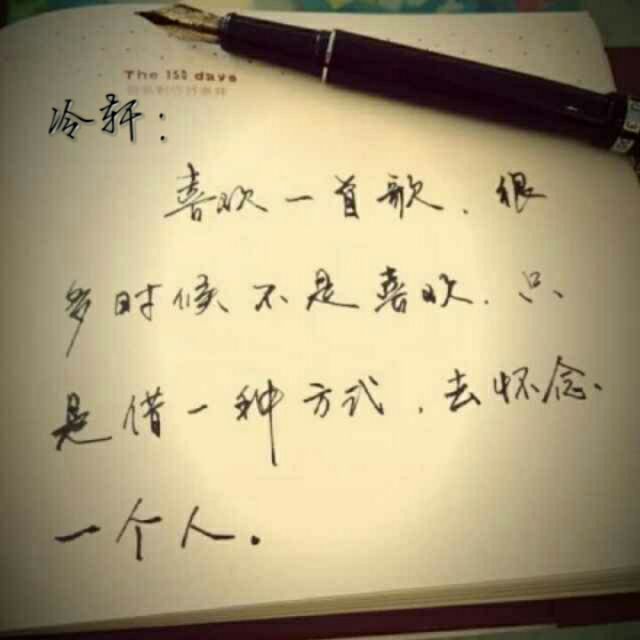 The 150 days
冷轩：
喜欢一首歌，很
多时候不是喜欢，只
是借一种方式，去怀念
一个人。